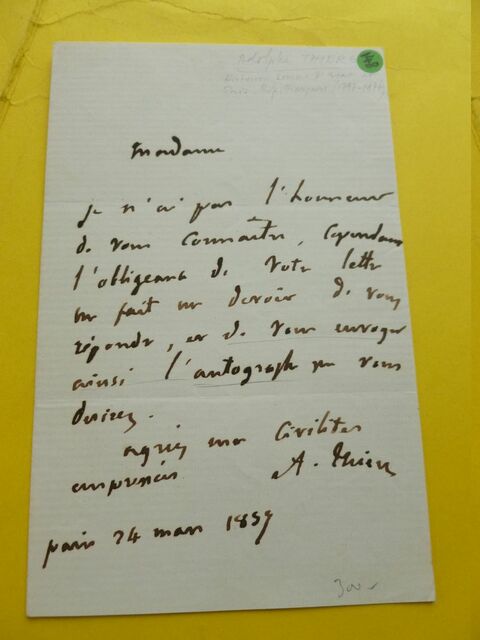 Adolphe THIERS
(1797-1877)
Madame
je n'ai pas l'honneur
de vous connaître, cependant
l'obligeance de votre lettre
me fait un devoir de vous
répondre, et de vous envoyer
ainsi l'autographe que vous
desirez.
agréez mes civilités
empressées A. Thiers
paris 24 mars 1859
300